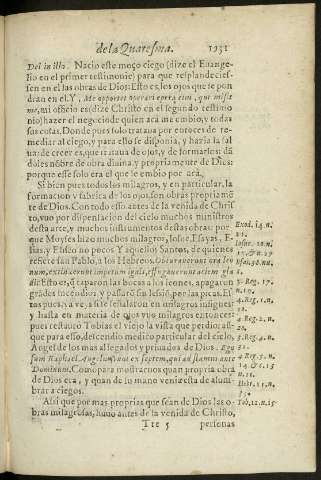 de la Quaresma. 1231
Dei in illo. Nacio este moço ciego (dize el Euange-
lio en el primer testimonio) para que resplandecies-
sen en el las obras de Dios: Esto es, los ojos que se pon
dran en el. Y, Me oportet operari opera eius, qui misit
me, mi officio es (dize Christo en el segundo testimo
nio) hazer el negocio de quien acà me embio, y todas
sus cosas. Donde pues solo trataua por entonces de re-
mediar al ciego, y para ello se disponia, y hazia la sal
ua: de creer es, que trataua de ojos, y de formarlos: da
doles nõbre de obra diuina, y propriamente de Dios:
porque esse solo era el que le embio por acà.
Si bien pues todos los milagros, y en particular, la
formacion y fabrica de los ojos, son obras propriamẽ
te de Dios. Con todo esso antes de la venida de Chris
to, vuo por dispensacion del cielo muchos ministros
desta arte, y muchos instrumentos destas obras: por-
que Moyses hizo muchos milagros, Iosue, Esayas, E-
lias, y Eliseo no pocos. Y aquellos Santos, de quienes
refiere san Pablo, a los Hebreos. Obturauerunt ora leo
num, extinxerunt impetum ignis, effugauerunt aciem gla
dij: Esto es, q̃ taparon las bocas a los leones, apagaron
grandes incendios, y passarõ sin lesiõ, por las picas. Es
tos pues, y a vezes este señalaron en milagros insignes:
y hasta en materia de ojos vuo milagros entonces:
pues restauro Tobias el viejo la vista que perdio: aũ-
que para esso, descendio medico particular del cielo,
Angel de los mas allegados y priuados de Dios. Ego
sum Raphael Angelus, vnus ex septem, qui adstamus ante
Dominum. Como para mostrarnos quan propria obra
de Dios era, y quan de su mano venia esta de alum-
brar a ciegos.
Assi que por mas proprias que sean de Dios las o-
bras milagrosas, huuo antes de la venida de Christo,
Ttt 5 personas
Exod. 14. n.
21.
Iosue. 10. n.
3. Reg. 17.
4. Reg. 2. n.
4. Reg. 5. n.
Hebr. 11. n.
Tob. 12. n. 15